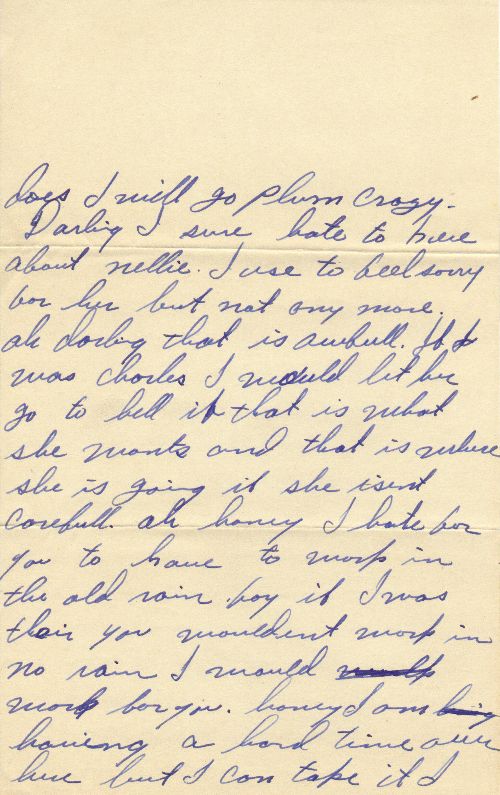 does I will go plum crazy.
Darling I sure hate to here
about nellie. I use to feel sorry
for her but not any more.
ah darling that is awfull. If I
was charles I would let her
go to hell if that is what
she wants and that is where
she is going if she isent
carefull. ah honey I hate for
you to have to work in
the old rain. boy if I was
thair you wouldent work in
no rain I would
work for you. honey I am
haveing a hard time over
here but I can take it I